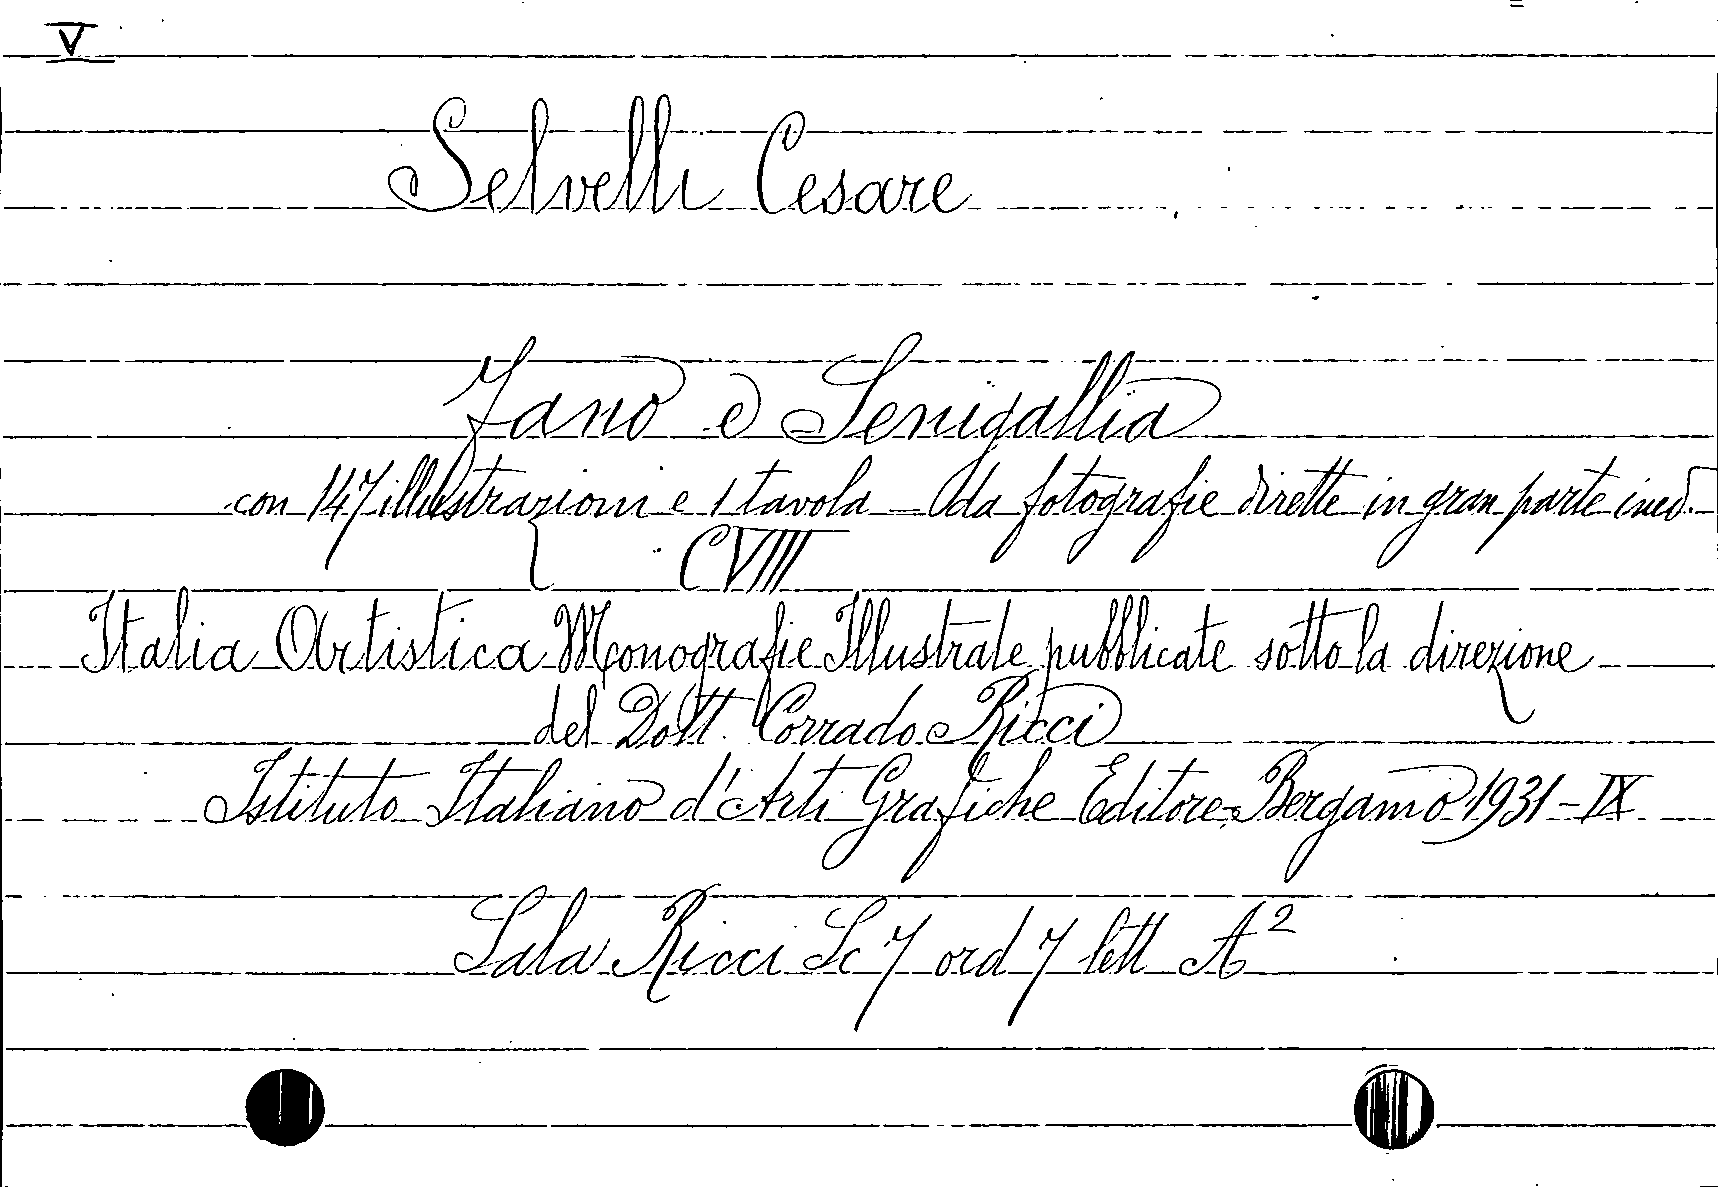 V
Selvelli Cesare
Fano e Senigallia
con 147 illustrazioni e 1 tavola - da fotografie dirette in gran parte ined.
CVIII
Italia Artistica Monografie Illustrate pubblicate sotto la direzione
del Dott. Corrado Ricci
Istituto Italiano d'Arti Grafiche Editore-Bergamo 1931-IX
Sala Ricci Sc 7 ord 7 lett A²